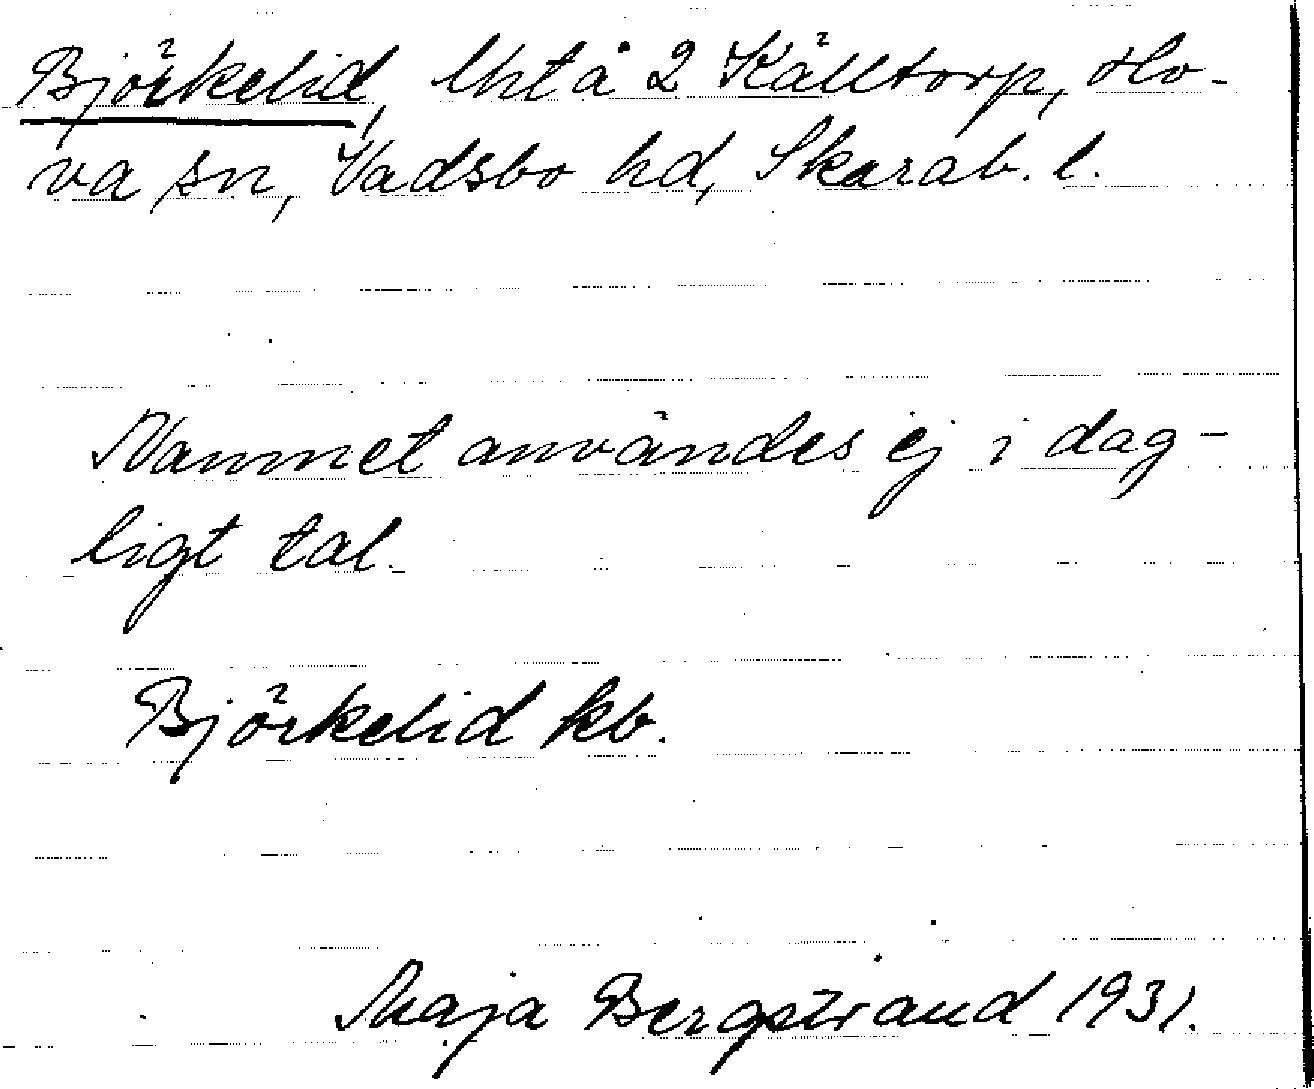 Björkelid, lht å 2 Källtorp, Ho-
va sn, Vadsbo hd, Skarab. l.
Namnet användes ej i dag-
ligt tal.
Björkelid kb.
Maja Bergstrand 1931.